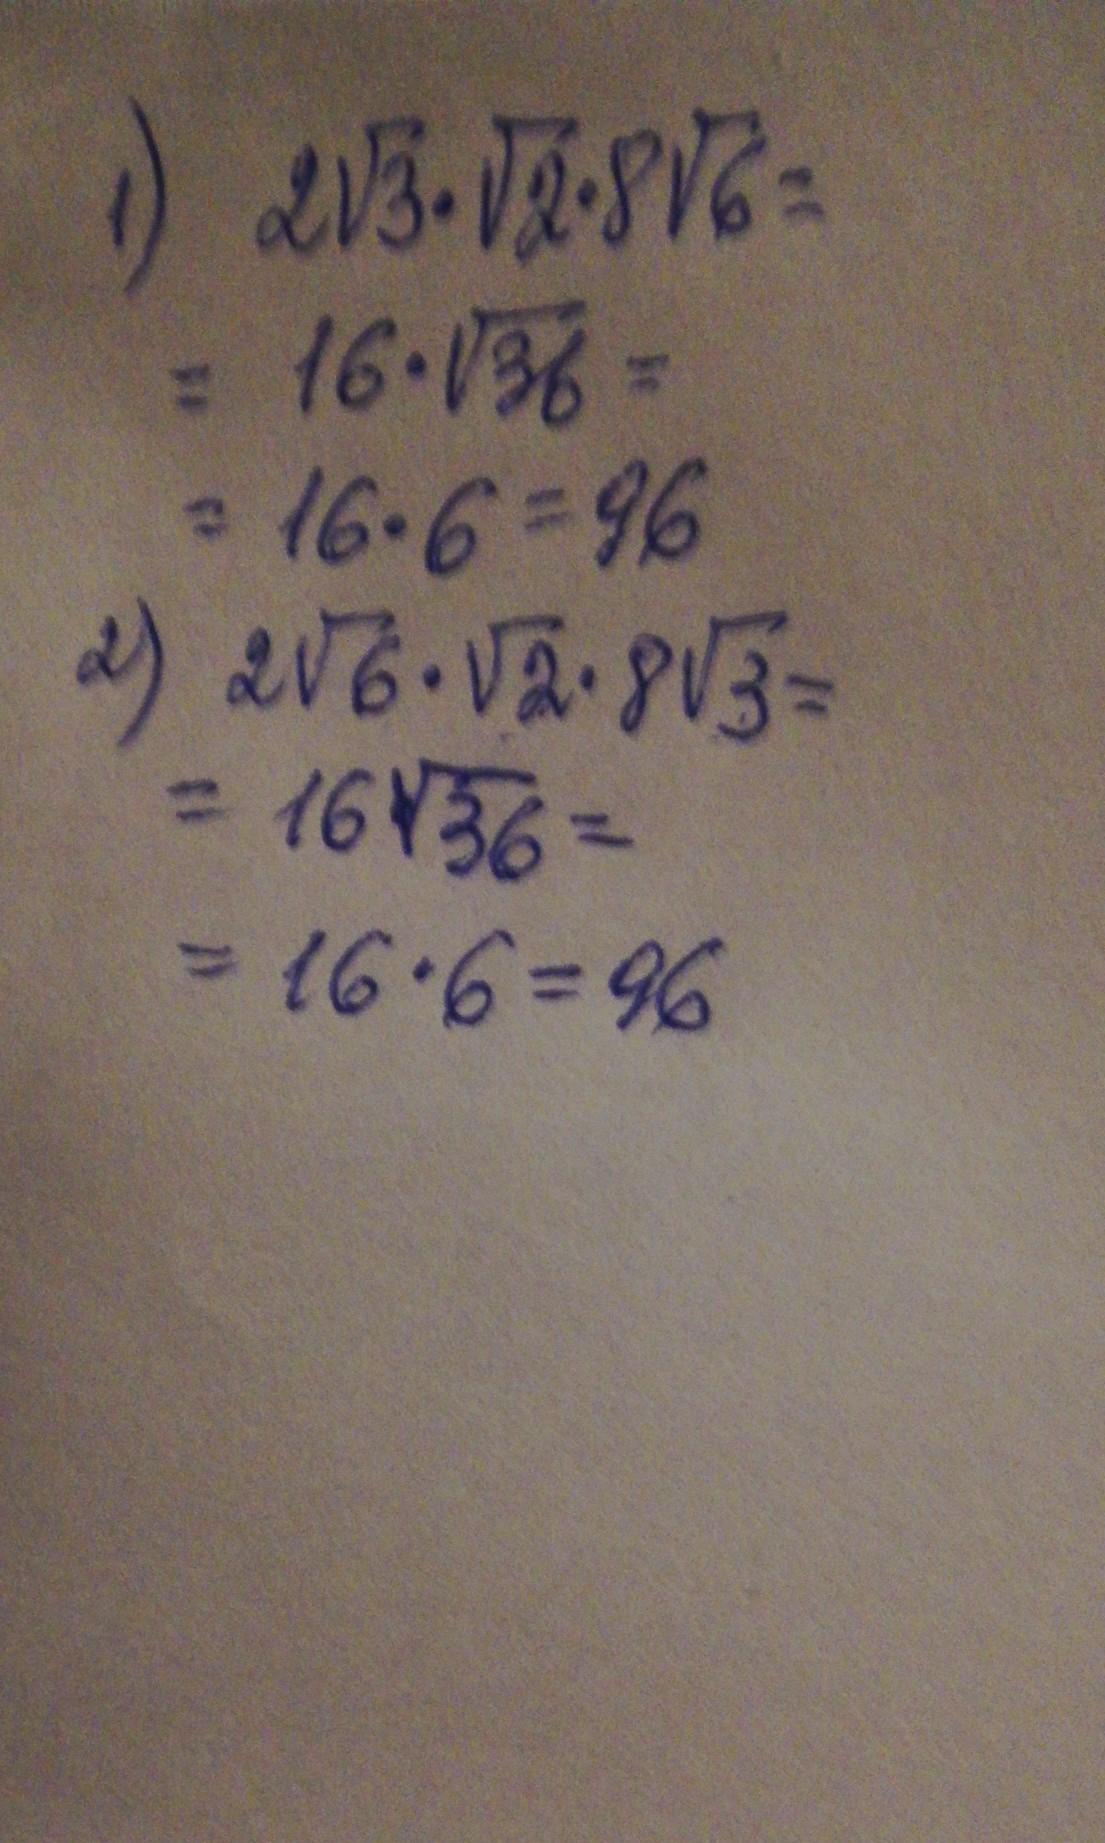 1) 2√3·√2·8√6=
= 16·√36 =
= 16·6 = 96
2) 2√6·√2·8√3=
= 16√36 =
= 16·6 = 96